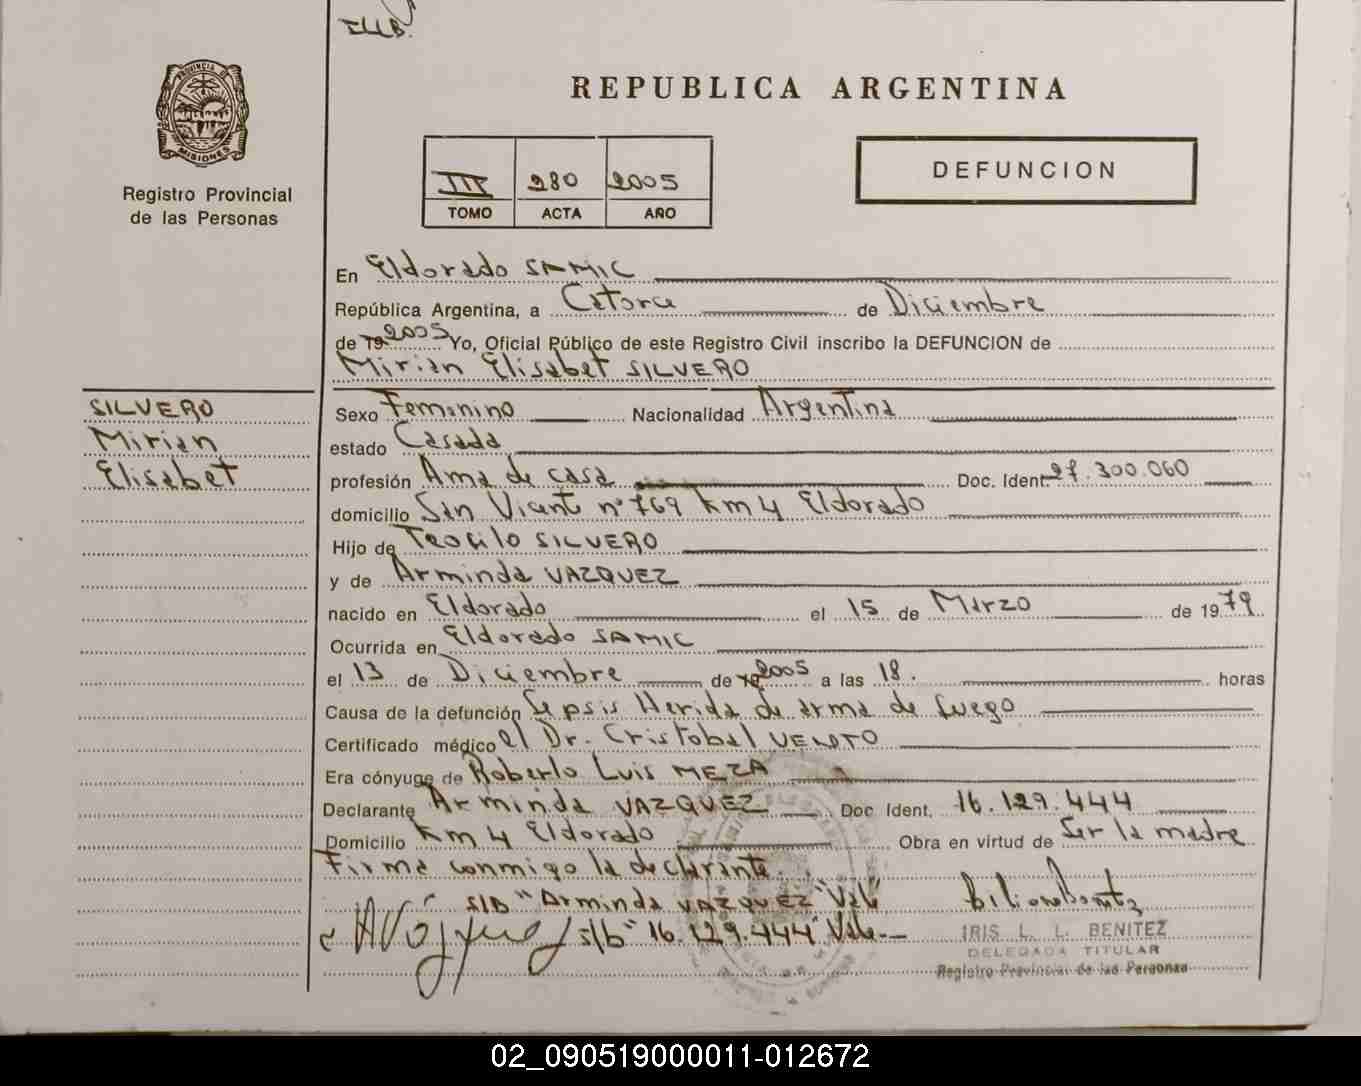 ILLB.
REPUBLICA ARGENTINA
PROVINCIA DE
MISIONES
Registro Provincial
de las Personas
III 280 2005
TOMO ACTA AÑO
DEFUNCION
En Eldorado SAMIC
República Argentina, a Catorce de Diciembre
de 19 2005 Yo, Oficial Público de este Registro Civil inscribo la DEFUNCION de
Mirian Elisabet SILVERO
SILVERO
Mirian
Elisabet
Sexo Femenino Nacionalidad Argentina
estado Casada
profesión Ama de casa Doc. Ident. 27.300.060
domicilio San Vicente nº 769 Km 4 Eldorado
Hijo de Teofilo SILVERO
y de Arminda VAZQUEZ
nacido en Eldorado el 15 de Marzo de 1979
Ocurrida en Eldorado SAMIC
el 13 de Diciembre de 19 2005 a las 18. horas
Causa de la defunción Sepsis Herida de arma de fuego
Certificado médico el Dr. Cristobal
Era cónyuge de Roberto Luis MEZA
Declarante Arminda VAZQUEZ Doc Ident. 16.129.444
Domicilio Km 4 Eldorado Obra en virtud de Ser la madre
Firma conmigo la declarante.
S/B "Arminda VAZQUEZ" Vale
s/b "16.129.444" Vale.-
IRIS L. L. BENITEZ
DELEGADA TITULAR
Registro Provincial de las Personas
02_090519000011-012672